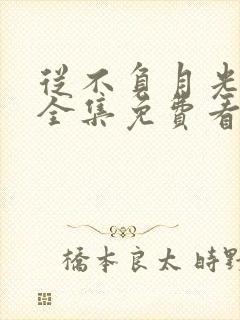 從不負月光
全集免費看
橋本良太 時野